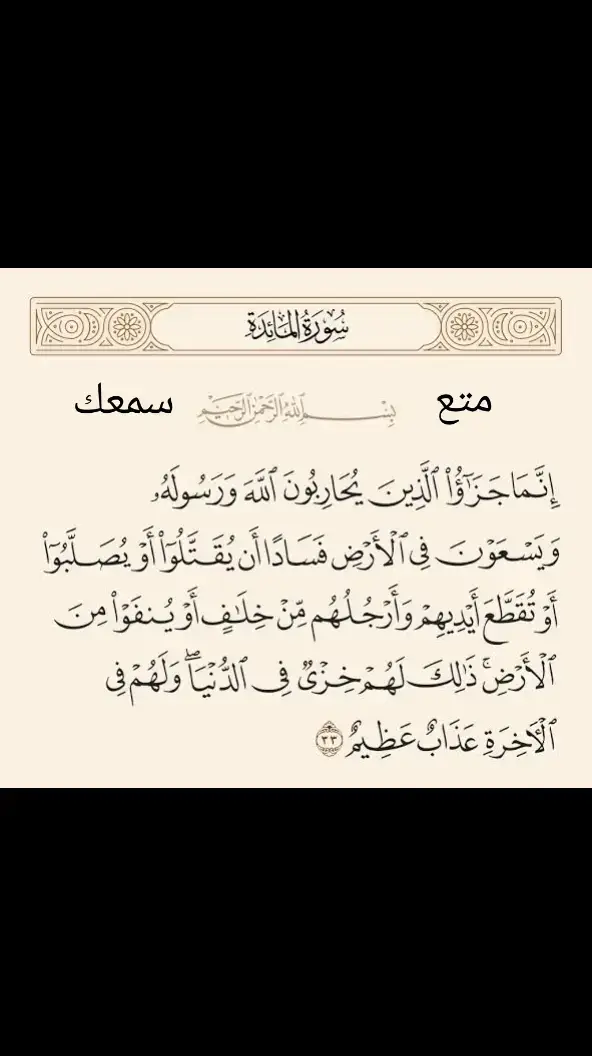 سُورَةُ المَائِدَةِ
متع بِسْمِ ٱللَّهِ ٱلرَّحْمَٰنِ ٱلرَّحِيمِ سمعك
إِنَّمَا جَزَٰٓؤُا۟ ٱلَّذِينَ يُحَارِبُونَ ٱللَّهَ وَرَسُولَهُۥ
وَيَسْعَوْنَ فِى ٱلْأَرْضِ فَسَادًا أَن يُقَتَّلُوٓا۟ أَوْ يُصَلَّبُوٓا۟
أَوْ تُقَطَّعَ أَيْدِيهِمْ وَأَرْجُلُهُم مِّنْ خِلَٰفٍ أَوْ يُنفَوْا۟ مِنَ
ٱلْأَرْضِ ۚ ذَٰلِكَ لَهُمْ خِزْىٌ فِى ٱلدُّنْيَا ۖ وَلَهُمْ فِى
ٱلْءَاخِرَةِ عَذَابٌ عَظِيمٌ ٣٣